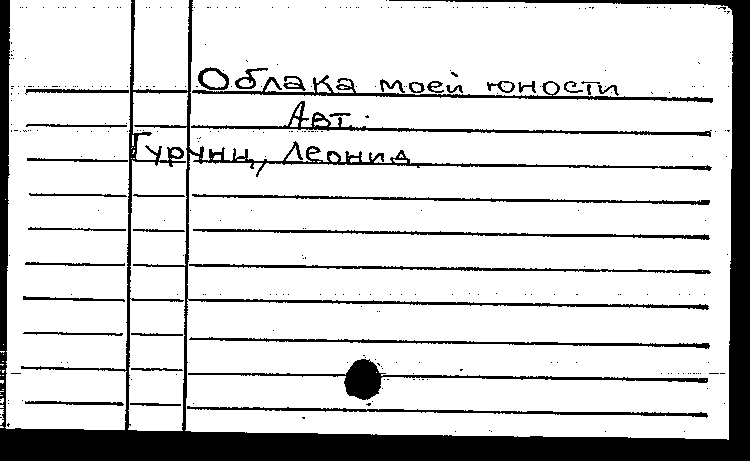 Облака моей юности
Авт.:
Гурунц, Леонид